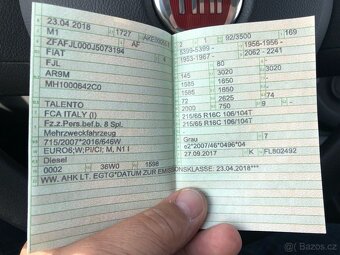 23.04.2018
1727
M1
AF
ZFAFJL000J5073194
FIAT
4
FJL
AR9M
MH1000642C0
TALENTO
FCA ITALY (I)
Fz.z.Pers.bef.b. 8 Spl.
Mehrzweckfahrzeug
715/2007*2016/646W
EURO6;W;PI/CI; M, N1 I
Diesel
0002 36W0 1598
WW. AHK LT. EGTG*DATUM ZUR EMISSIONSKLASSE: 23.04.2018***
2 1 92/3500 169
5399-5399 - 1956-1956 -
1953-1967 2062-2241
80
145 3020 3020
1585 1585
1585 1585
72 2625 74
2000 750 9 -
215/65 R16C 106/104T
215/65 R16C 106/104T
Grau 7
e2*2007/46*0496*04
27.09.2017 K FL802492
Bazoš.cz